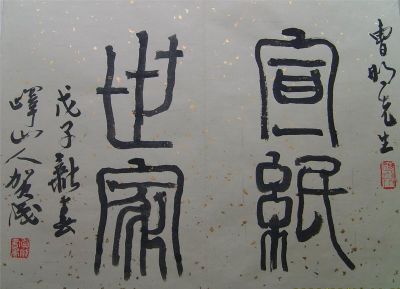 曹明先生
宣紙
世家
戊子新春
嶧山人贺茂